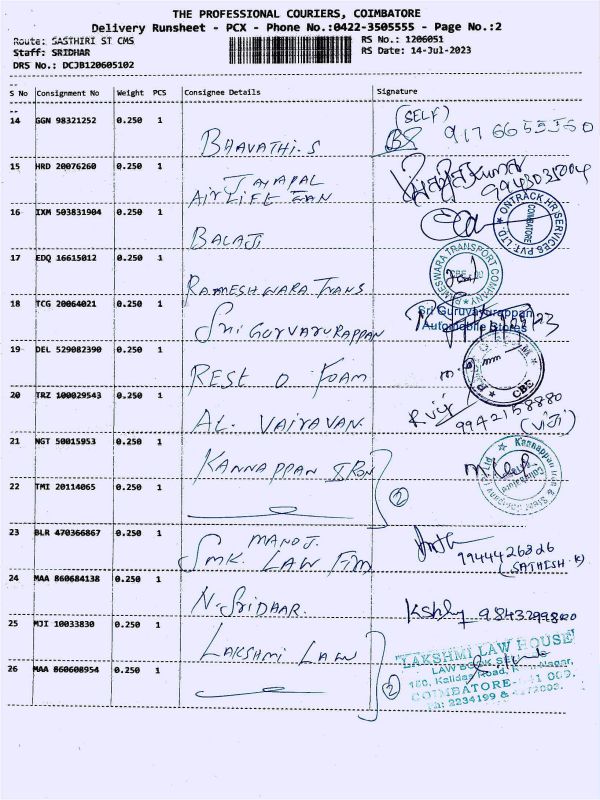 THE PROFESSIONAL COURIERS, COIMBATORE
Delivery Runsheet - PCX - Phone No.:0422-3505555 - Page No.:2
Route: SASTHIRI ST CMS
RS No.: 1206051
Staff: SRIDHAR
RS Date: 14-Jul-2023
DRS No.: DCJB120605102
S No Consignment No Weight PCS Consignee Details Signature
14 GGN 98321252 0.250 1
BHAVATHI.S
(SELF)
15 HRD 20076260 0.250 1
JAYAPAL
AIRLIFT
9943035004
16 IXM 503831904 0.250 1
BALAJI
ONTRACK HR SERVICES PVT. LTD.
COIMBATORE
17 EDQ 16615012 0.250 1
RAMESHWARA TRANS
RAMESWARA TRANSPORT COMPANY
18 TCG 20064021 0.250 1
SRI GURVAYURAPPAN
Sri Guruvayurappan
Automobile Stores
19 DEL 529082390 0.250 1
REST O FOAM
CBE
20 TRZ 100029543 0.250 1
AL. VAIRAVAN.
9942158880
21 NGT 50015953 0.250 1
KANNAPPAN IRON
Kannappan Iron & Steel
22 TMI 20114065 0.250 1
2
23 BLR 470366867 0.250 1
MANOJ.
SMK. LAW FIRM
9944426326
(SATHISH.K)
24 MAA 860684138 0.250 1
N. SRIDHAR.
25 MJI 10033830 0.250 1
LAKSHMI LAW
LAKSHMI LAW HOUSE
LAW BOOK
180, Kalidas Road, Nagar,
COIMBATORE-
26 MAA 860608954 0.250 1
2
Ph: 2234199 &